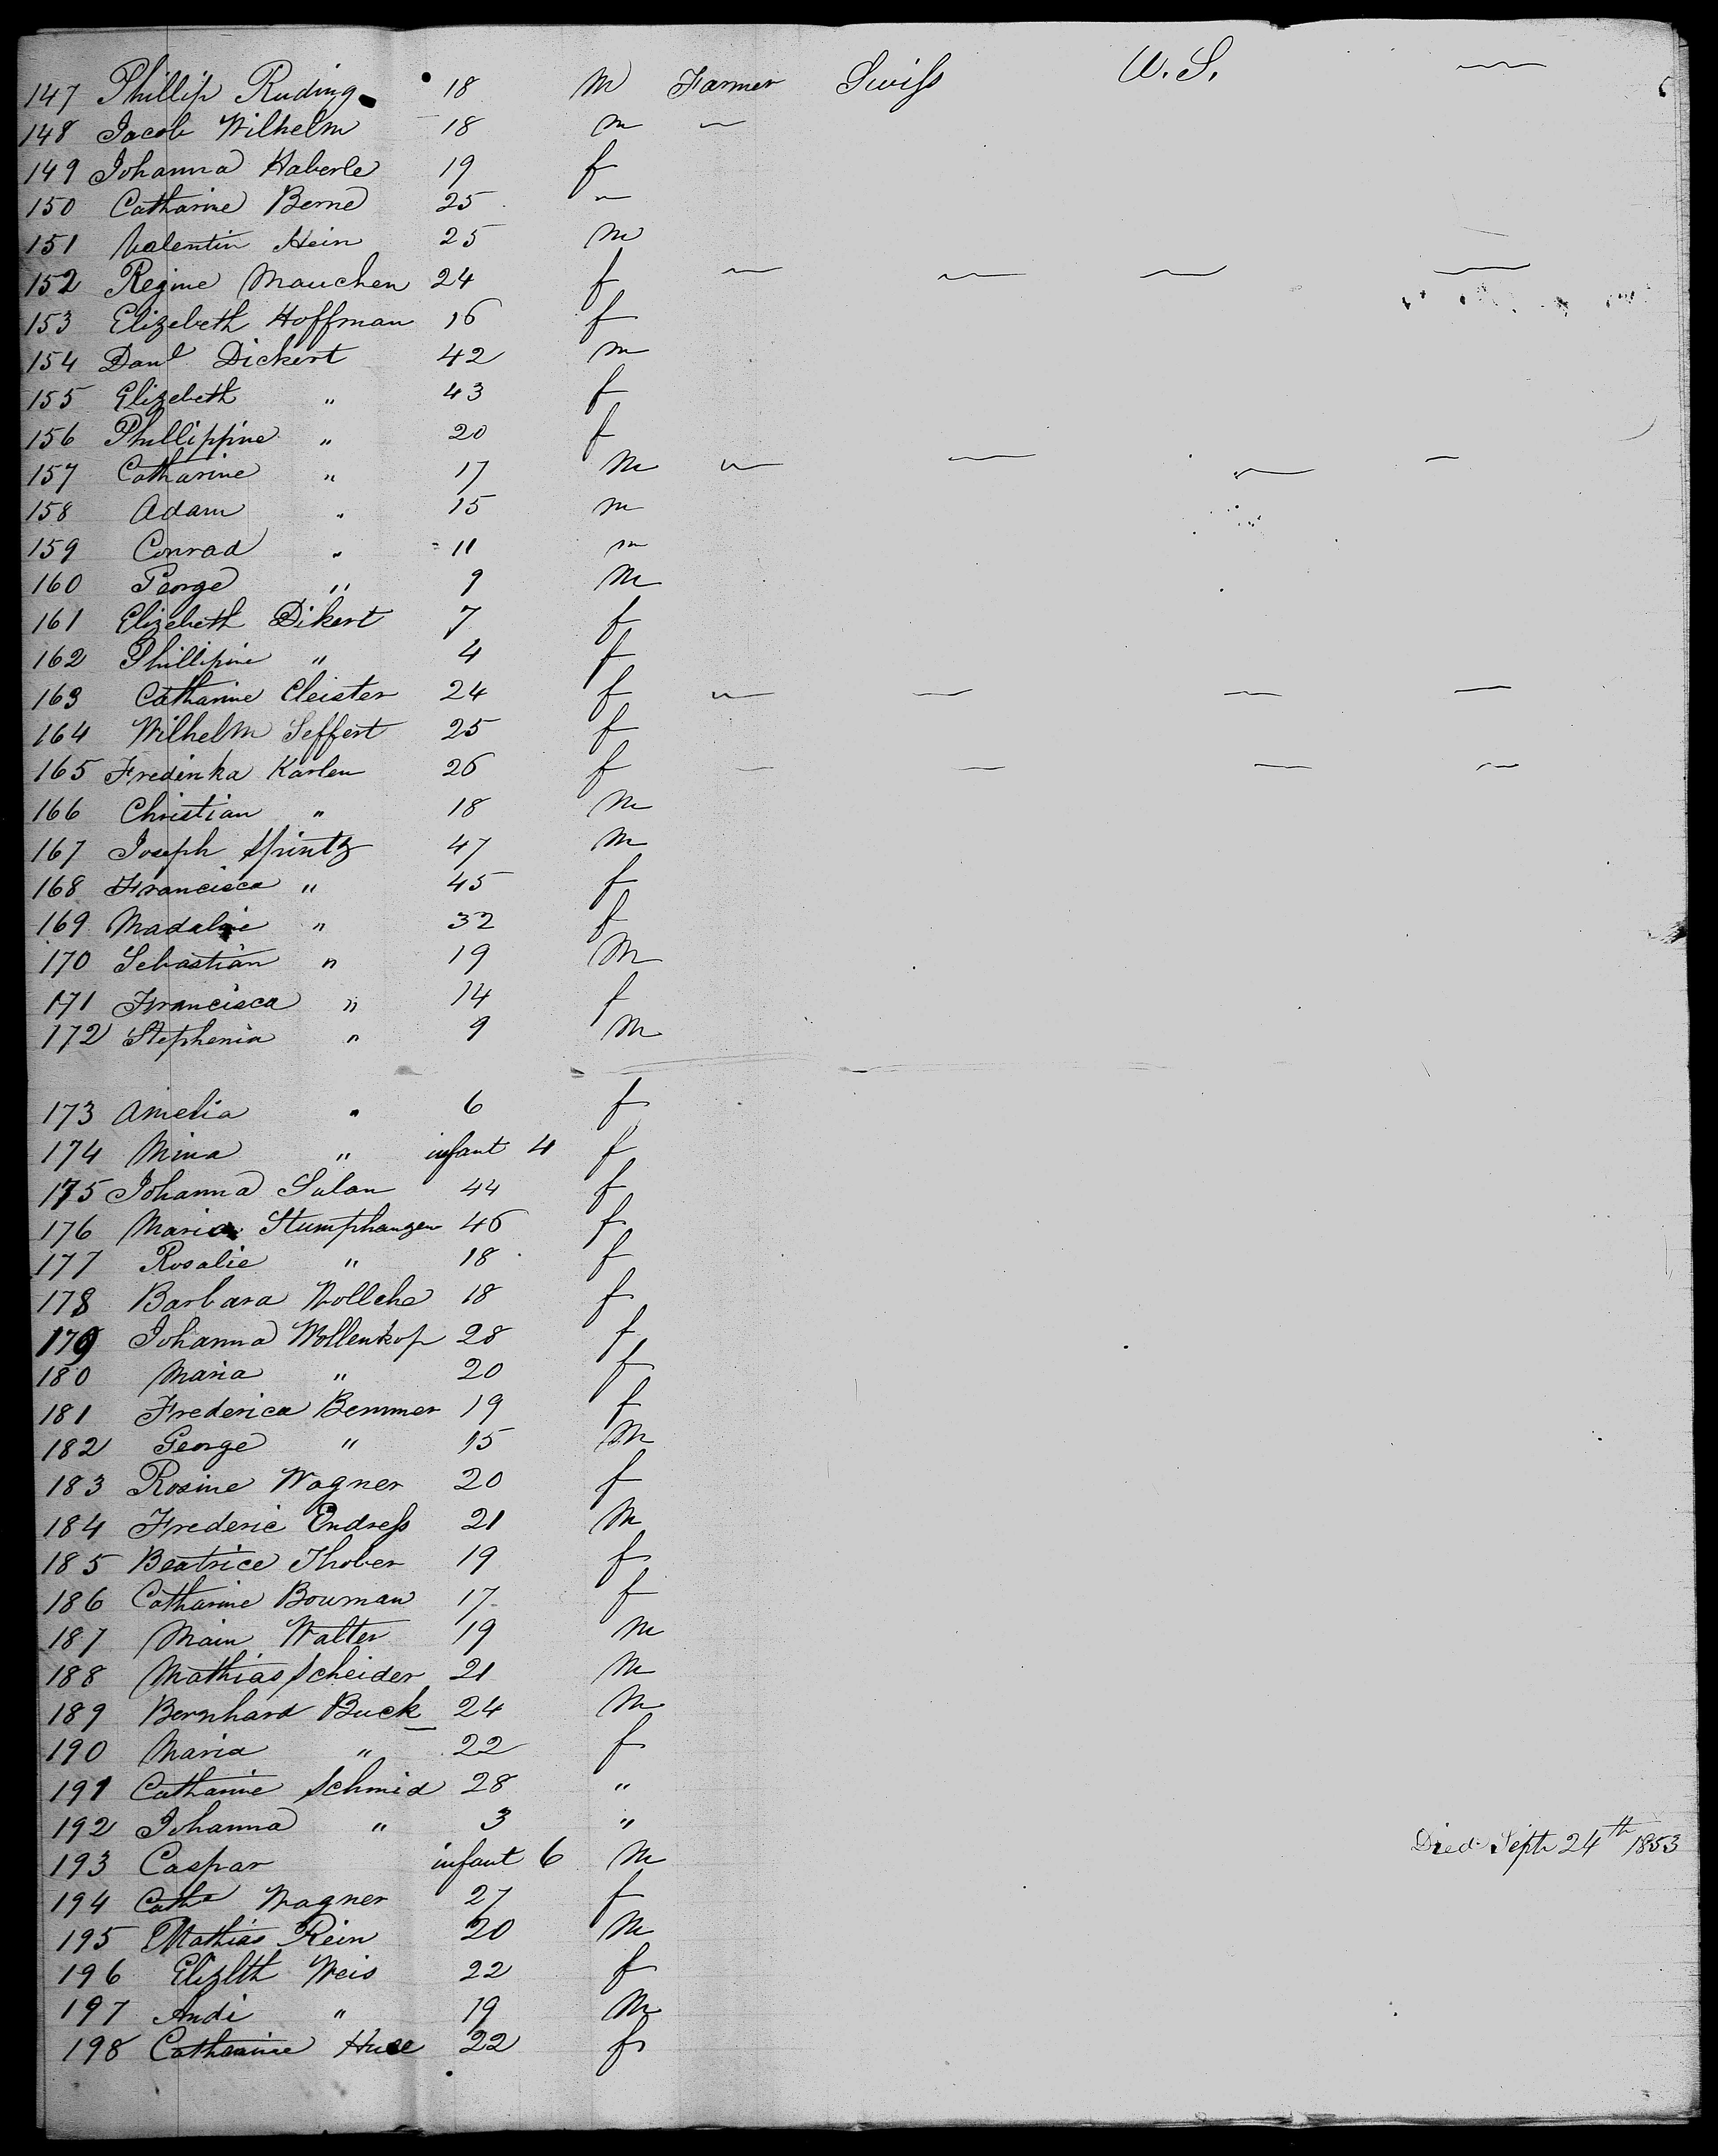 147 Phillip Ruding 18 M Farmer Swiss U.S. —
148 Jacob Wilhelm 18 m —
149 Johanna Haberle 19 f
150 Catharine Berne 25 —
151 Valentin Hein 25 m
152 Regine Mauchen 24 f — — — —
153 Elizebeth Hoffman 16 f
154 Danl Dickert 42 m
155 Elizebeth " 43 f
156 Phillippine " 20 f
157 Catharine " 17 m — — — —
158 Adam " 15 m
159 Conrad " 11 m
160 George " 9 m
161 Elizebeth Dikert 7 f
162 Phillipine " 4 f
163 Catharine Cleister 24 f — — — —
164 Wilhelm Seffert 25 f
165 Fredinka Karlen 26 f — — — —
166 Christian " 18 m
167 Joseph Sprintz 47 m
168 Francisca " 45 f
169 Madaline " 32 f
170 Sebastian " 19 m
171 Francisca " 14 f
172 Stephenia " 9 m
173 Amelia " 6 f
174 Mina " infant 4 f
175 Johanna Sulan 44 f
176 Maria Stumphangen 46 f
177 Rosalie " 18 f
178 Barbara Wollche 18 f
179 Johanna Wollenkop 28 f
180 Maria " 20 f
181 Frederica Bemmer 19 f
182 George " 15 m
183 Rosine Wagner 20 f
184 Frederic Endress 21 m
185 Beatrice Thober 19 f
186 Catharine Bouman 17 f
187 Main Walter 19 m
188 Mathias Scheider 21 m
189 Bernhard Buck 24 m
190 Maria " 22 f
191 Catharine Schmid 28 "
192 Johanna " 3 "
193 Caspar infant 6 m Died Septr 24th 1853
194 Catha Wagner 27 f
195 Mathias Rein 20 m
196 Elizlth Weis 22 f
197 Andi " 19 m
198 Catharine 22 f